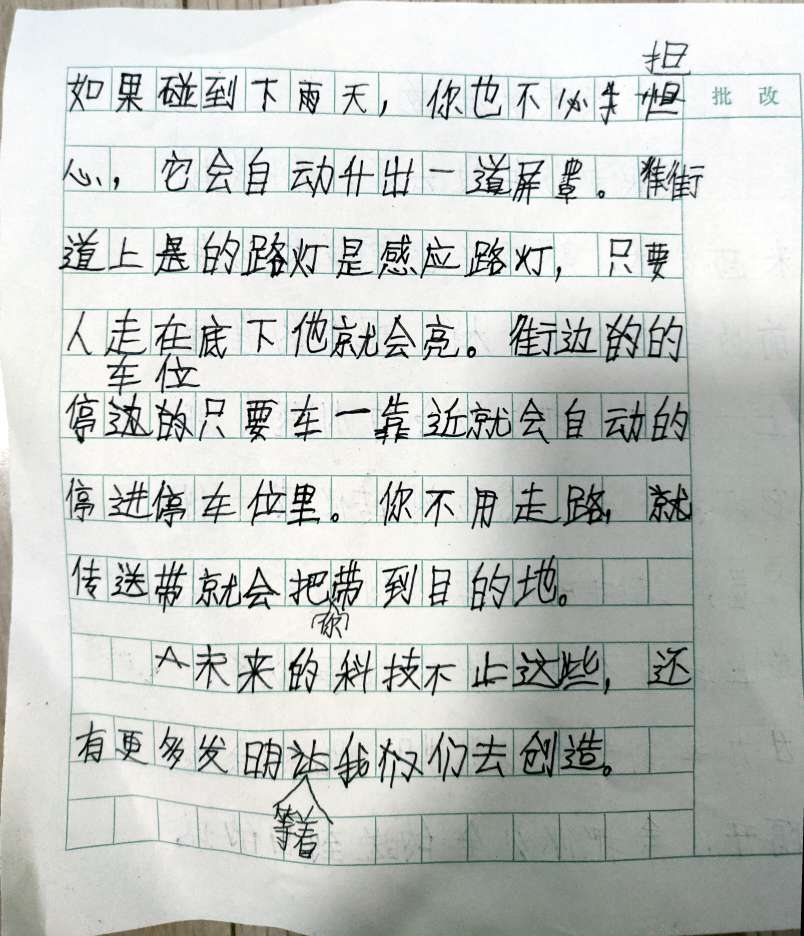 担
如果碰到下雨天，你也不必
批改
心，它会自动升出一道屏罩。街
道上的路灯是感应路灯，只要
人走在底下他就会亮。街边的的
车位
停边的只要车一靠近就会自动的
停进停车位里。你不用走路，就
传送带就会把带到目的地。
（你）
未来的科技不止这些，还
有更多发明让我们去创造。
等着